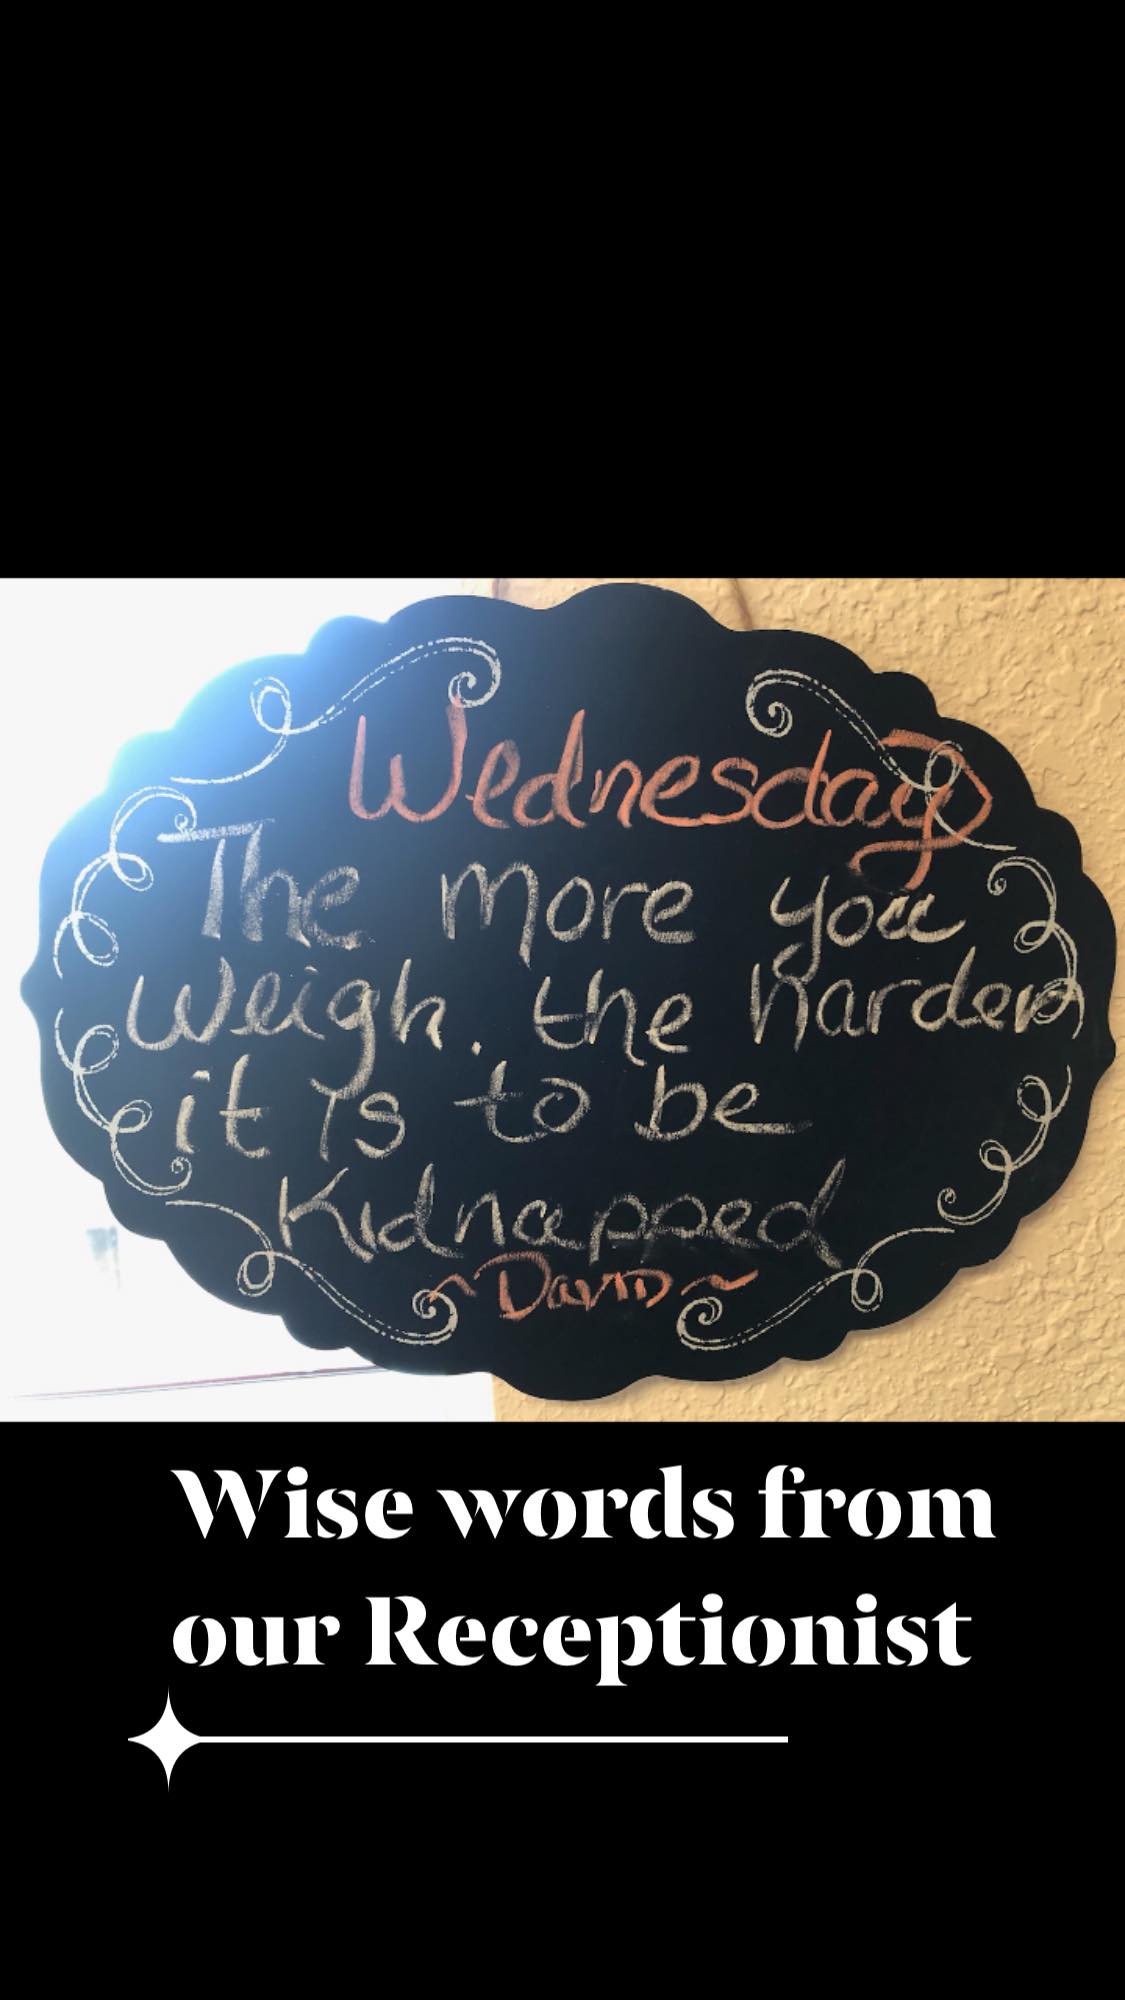 Wednesday
The more you
Weigh. the harder
it is to be
Kidnapped
~David~
Wise words from
our Receptionist